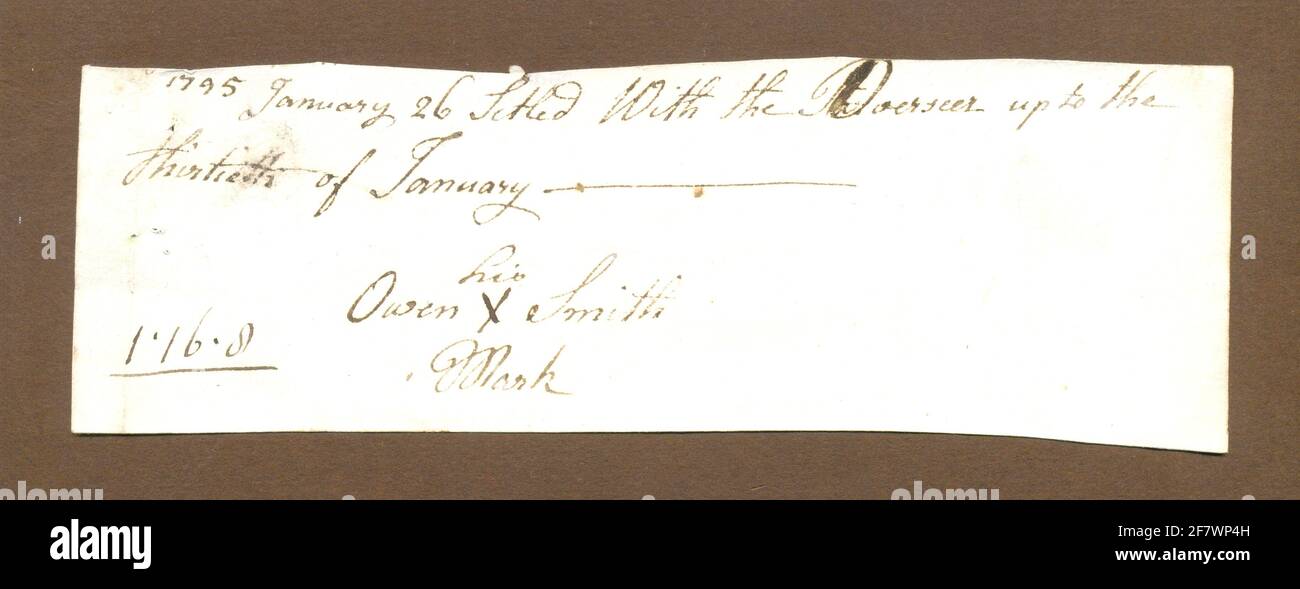 1795 January 26 Setled With the Overseer up to the
thirtieth of January
his
Owen X Smith
Mark
1·16·8
a
a
alamy
alamy
alamy
Image ID: 2F7WP4H
www.alamy.com